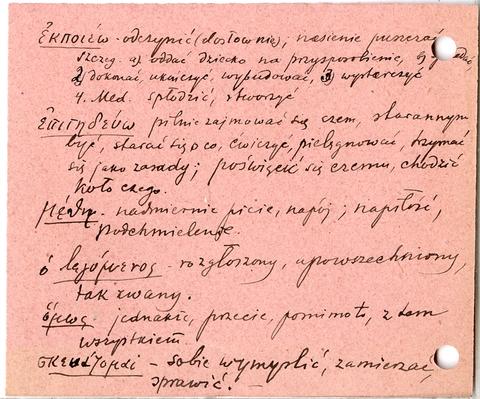 Ἐκποιέω - odczynić (dosłownie); nasienie puszczać
szczeg. a) oddać dziecko na przysposobienie, b)
2) dokonać, ukończyć, wybudować, 3) wystarczyć
4. Med. spłodzić, stworzyć
Ἐπιτηδεύω pilnie zajmować się czem, starannym
być, starać się o co, ćwiczyć, pielęgnować, trzymać
się jako zasady; poświęcić się czemu, chodzić
koło czego.
Μέθη - nadmierne picie, napój; napiłość,
podchmielenie.
ὁ λεγόμενος - rozgłoszony, upowszechniony,
tak zwany.
ὅμως - jednakże, przecie, pomimo to, z tem
wszystkiem.
– sobie wymyślić, zamierzać,
sprawić.